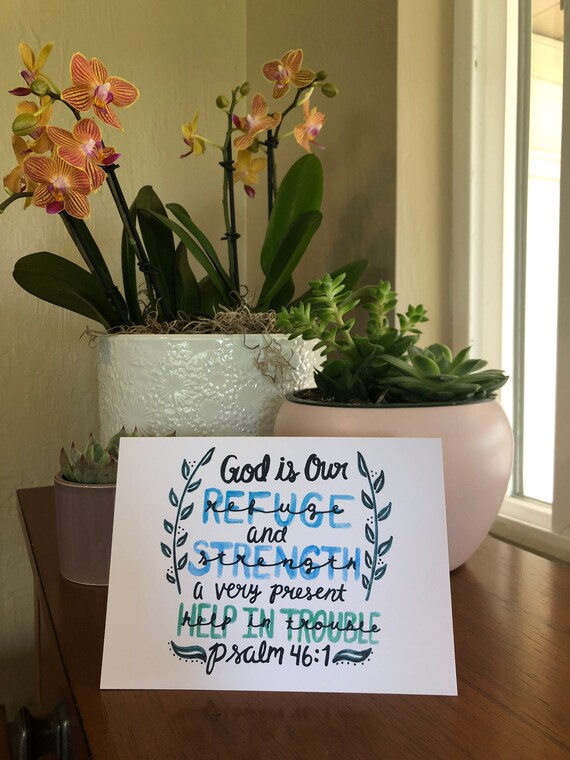 God is Our
REFUGE
refuge
and
STRENGTH
strength
a very present
HELP IN TROUBLE
help in trouble
psalm 46:1